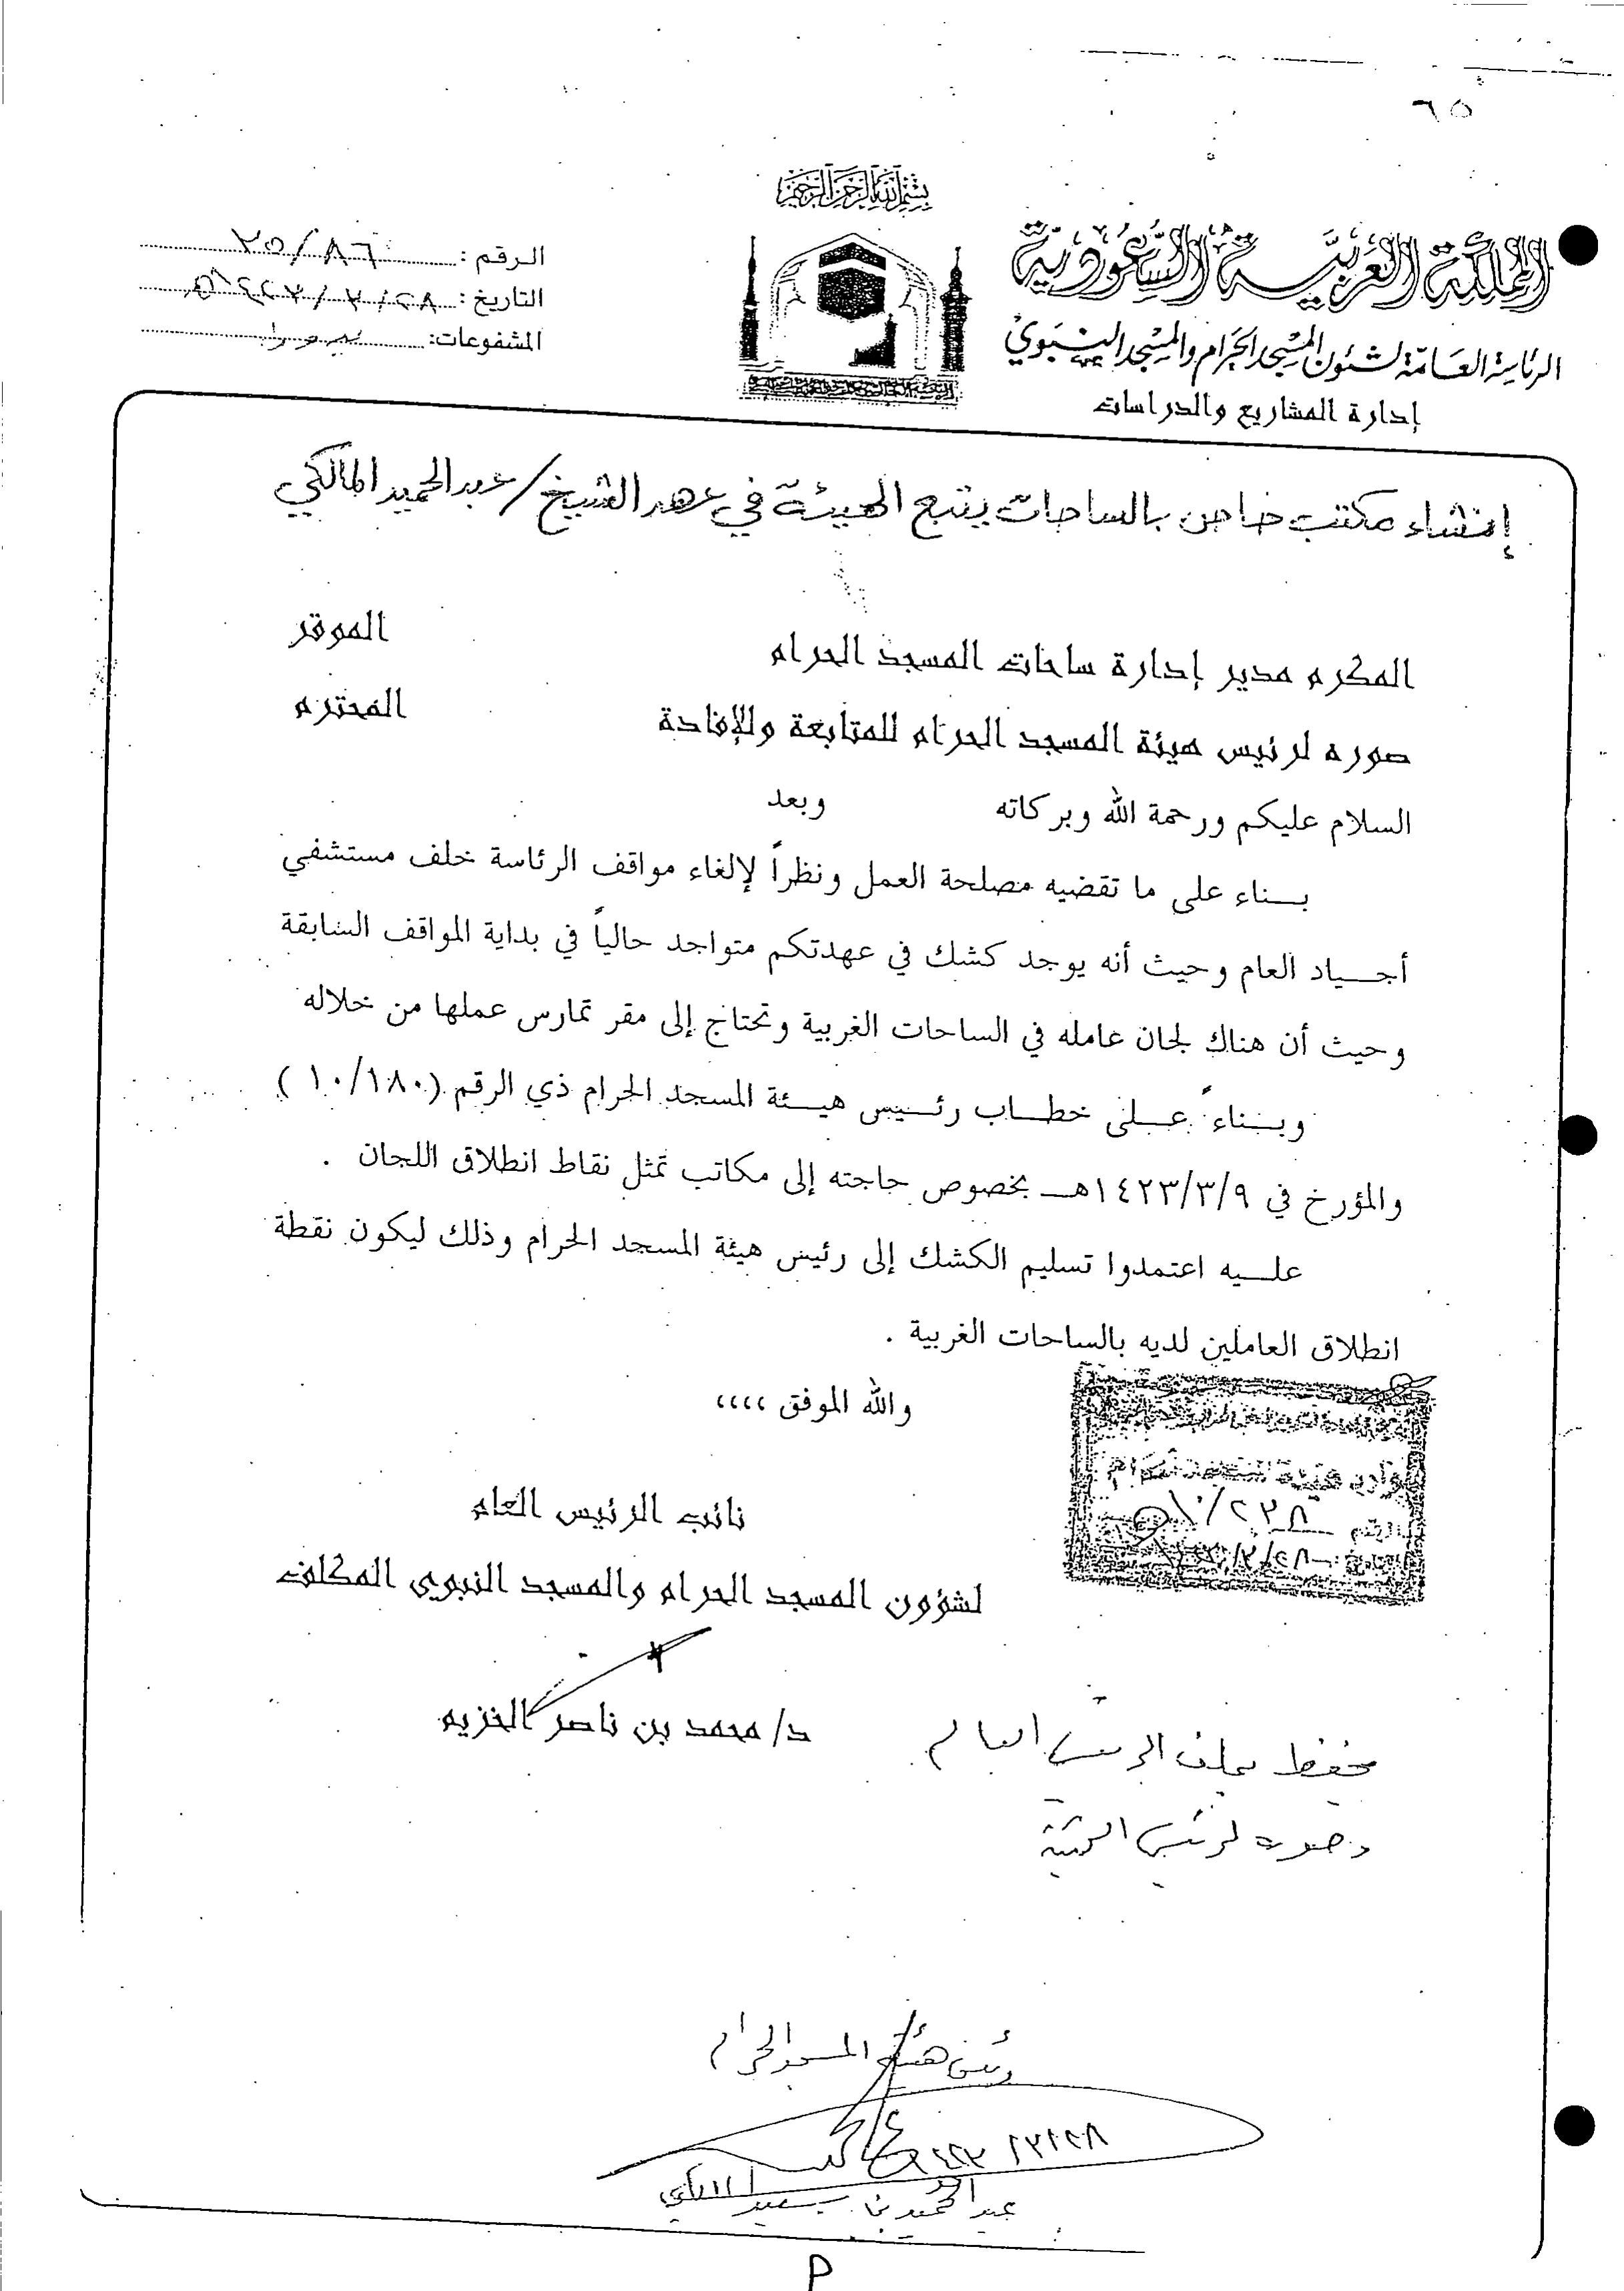 ٦٥
بسم الله الرحمن الرحيم
المملكة العربية السعودية
الرئاسة العامة لشئون المسجد الحرام والمسجد النبوي
إدارة المشاريع والدراسات
الرقم : ٢٥/٨٦
التاريخ : ٢٨/٣/١٤٢٣هـ
المشفوعات:
إنشاء مكتب خاص بالساحات يتبع الهيئة في عهد الشيخ/عبدالحميد المالكي
المكرم مدير إدارة ساحات المسجد الحرام الموقر
صوره لرئيس هيئة المسجد الحرام للمتابعة وللإفادة المحترم
السلام عليكم ورحمة الله وبركاته وبعد
بـــناء على ما تقضيه مصلحة العمل ونظراً لإلغاء مواقف الرئاسة خلف مستشفي
أجـــياد العام وحيث أنه يوجد كشك في عهدتكم متواجد حالياً في بداية المواقف السابقة
وحيث أن هناك لجان عامله في الساحات الغربية وتحتاج إلى مقر تمارس عملها من خلاله
وبـــناءً عـــلى خطـــاب رئـــيس هيـــئة المسجد الحرام ذي الرقم (١٠/١٨٠ )
والمؤرخ في ١٤٢٣/٣/٩هـــ بخصوص حاجته إلى مكاتب تمثل نقاط انطلاق اللجان .
علـــيه اعتمدوا تسليم الكشك إلى رئيس هيئة المسجد الحرام وذلك ليكون نقطة
انطلاق العاملين لديه بالساحات الغربية .
والله الموفق ،،،،
وارد هيئة المسجد الحرام
الرقم ١٠/٢٣٨
نائب الرئيس العام
لشؤون المسجد الحرام والمسجد النبوي المكلف
د/ محمد بن ناصر الخزيم
يحفظ بملف الرئيس العام
وصوره لرئيس الهيئة
رئيس هيئة المسجد الحرام
عبدالحميد بن سعيد المالكي
P